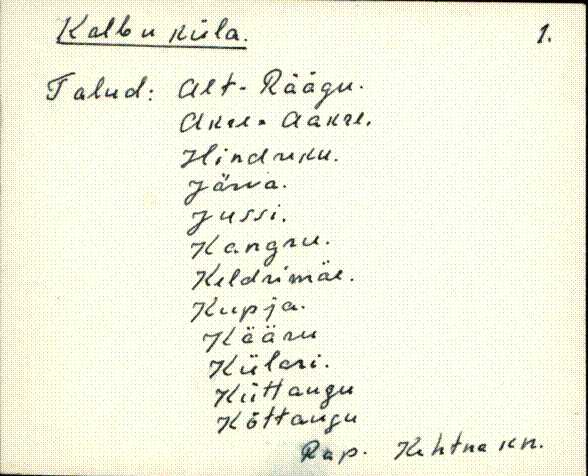 Kalbu küla. 1.
Talud: Alt-Räägu.
Akre - Aakre.
Hindreku.
Järva.
Jussi.
Kangru.
Keldrimäe.
Kupja.
Kääru
Külari.
Küttangu
Kõttangu
Rap. Kehtna kn.